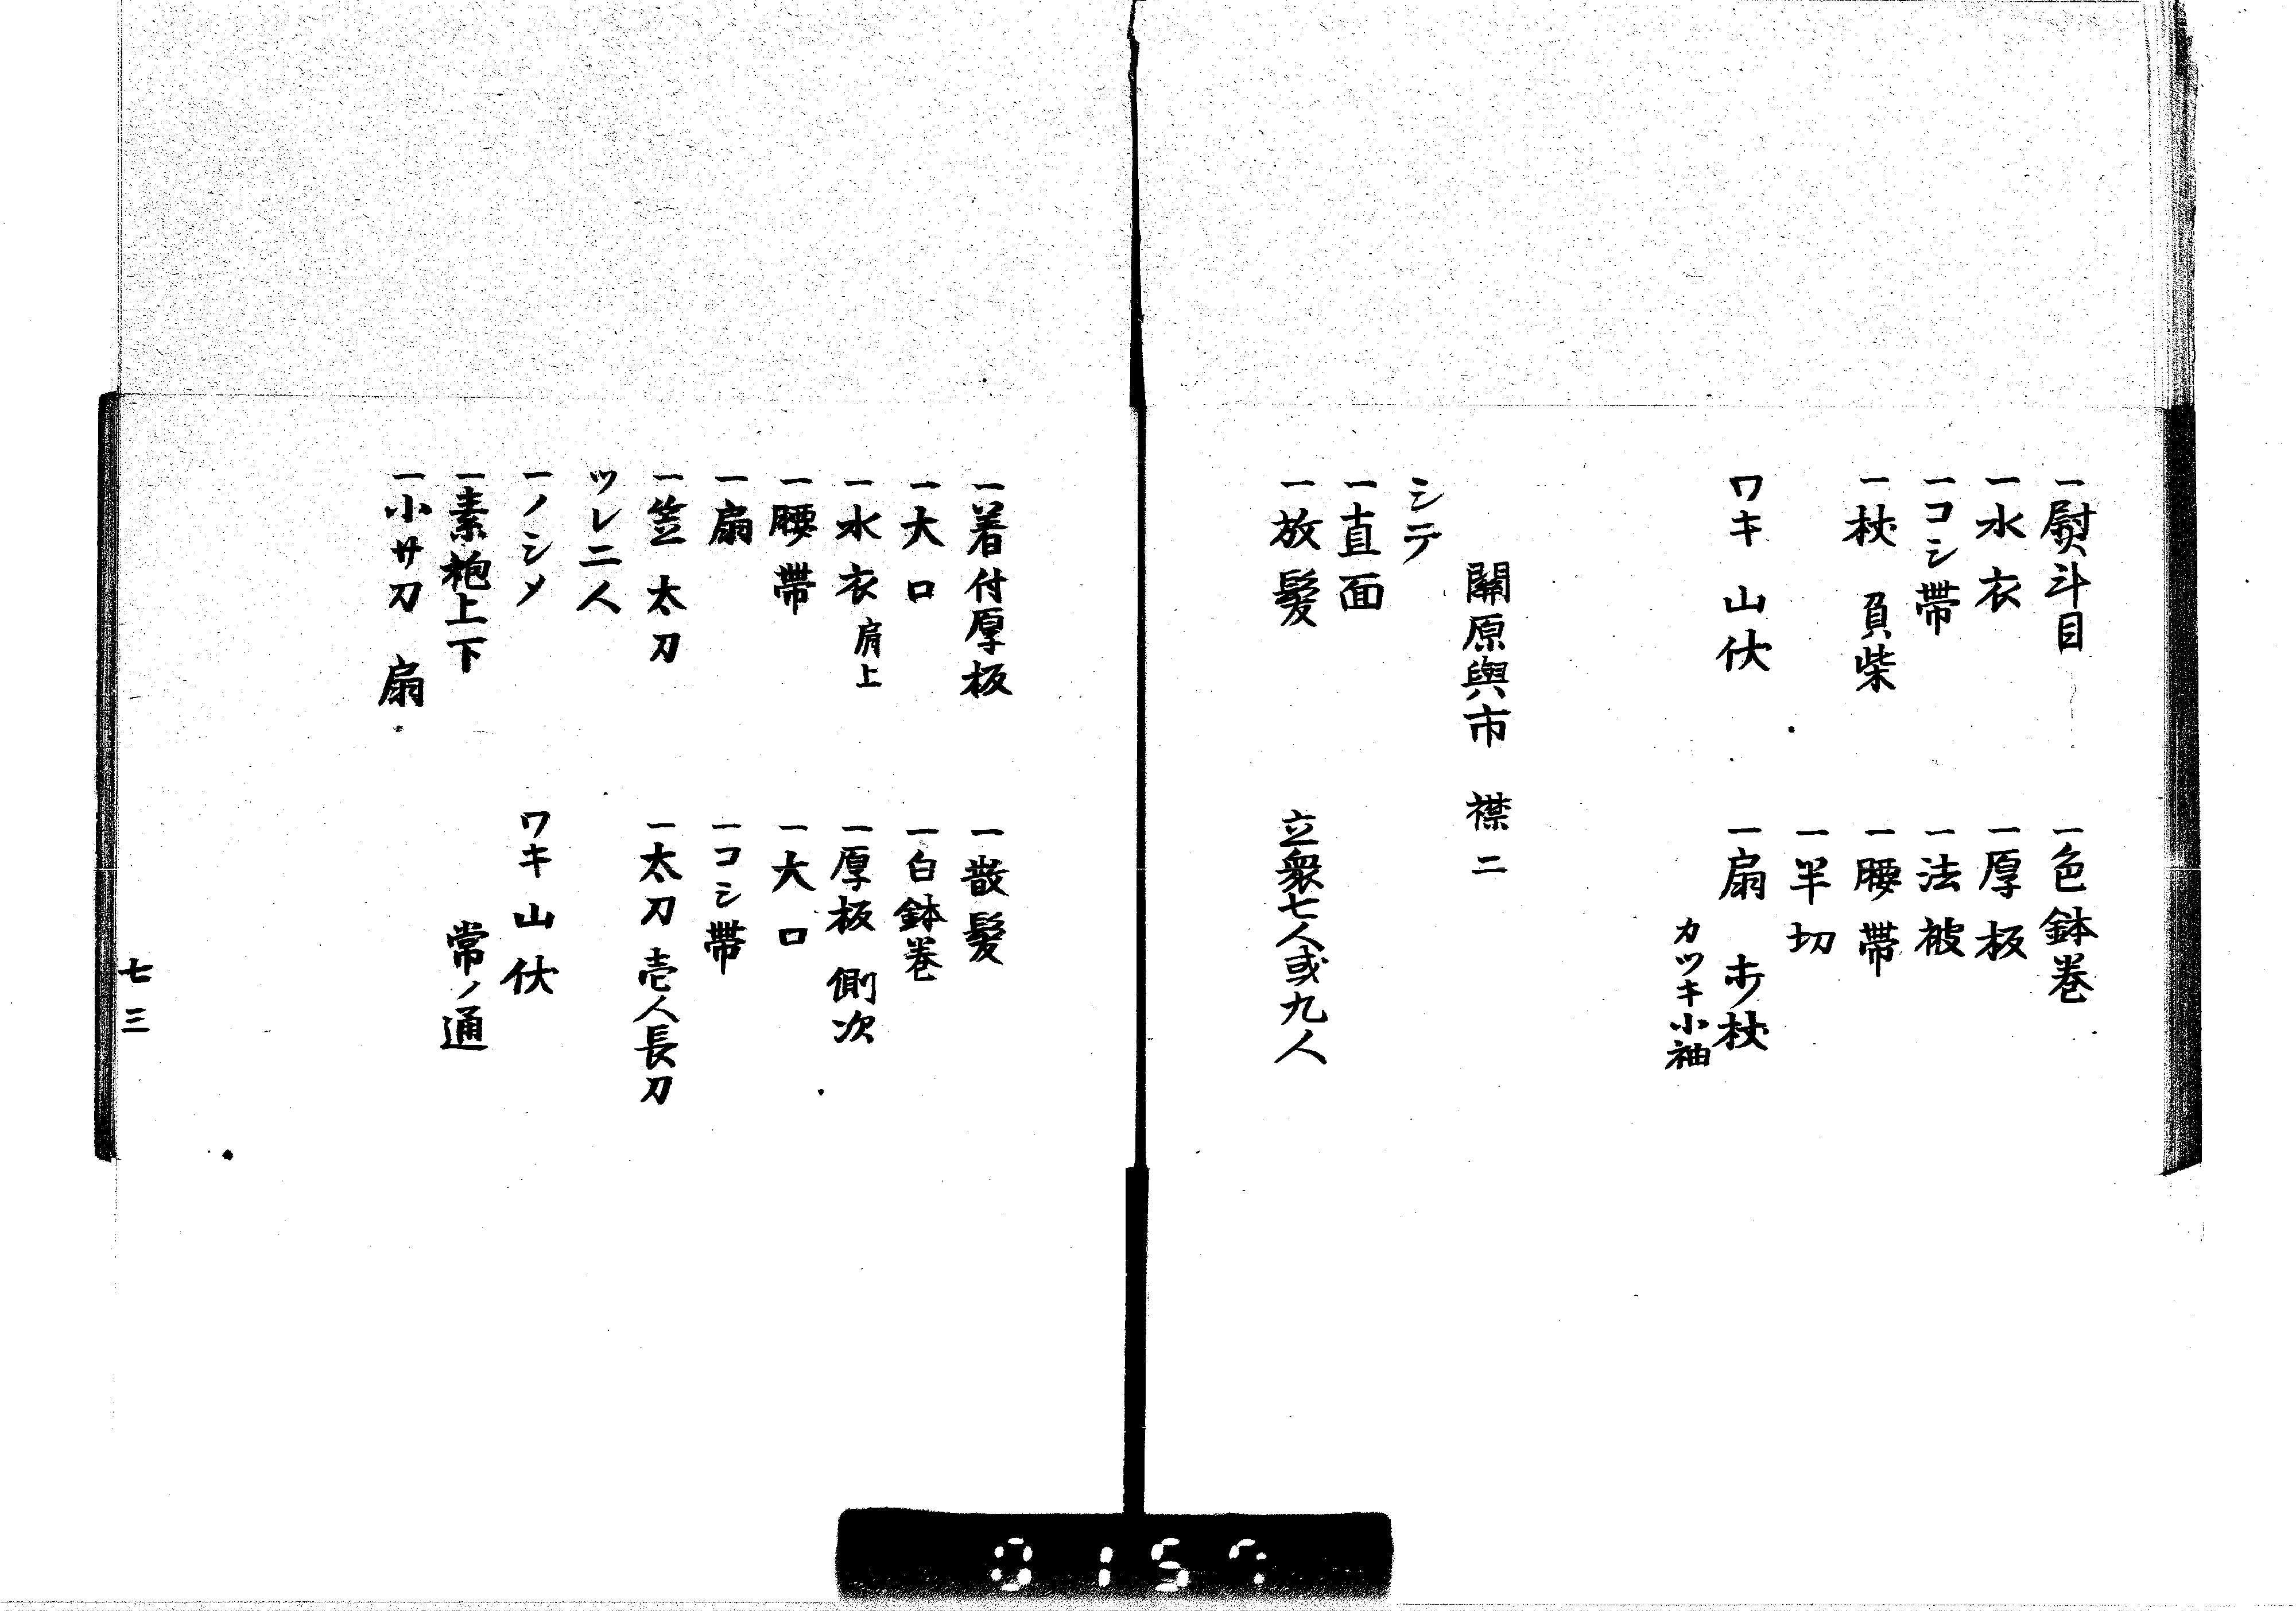 一熨斗目
一水衣
一コシ帯
一杖 負柴
ワキ 山伏
一色鉢巻
一厚板
一法被
一腰帯
一半切
一扇 杖
カツキ小袖
關原與市 襟二
シテ
一直面
一放髪
一着付厚板
一大口
一水衣 肩上
一腰帯
一扇
一笠 太刀
ツレ二人
一ノシメ
一素袍上下
一小サ刀 扇
立衆七人或九人
一散髪
一白鉢巻
一厚板 側次
一大口
一コシ帯
一太刀 壱人長刀
ワキ 山伏
常ノ通
七三
0157